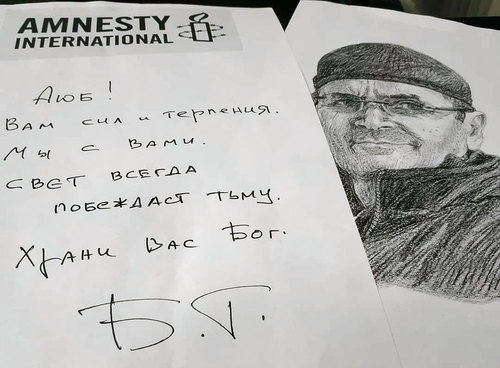 AMNESTY
INTERNATIONAL
Аюб!
Вам сил и терпения.
Мы с вами.
Свет всегда
побеждает тьму.
Храни Вас Бог.
Б.Г.